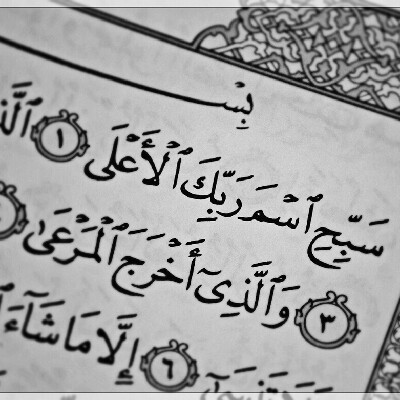 بِسْ
سَبِّحِ ٱسْمَ رَبِّكَ ٱلْأَعْلَى ١
٣ وَٱلَّذِىٓ أَخْرَجَ ٱلْمَرْعَىٰ
٦ إِلَّا مَا شَآءَ